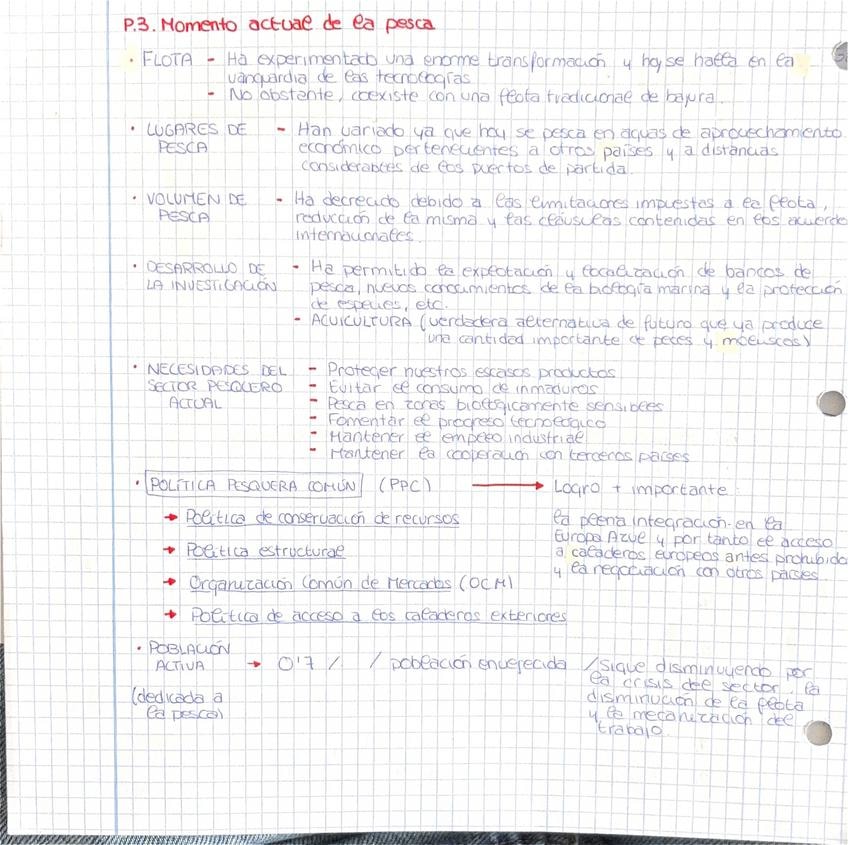 P.3. Momento actual de la pesca
· FLOTA - Ha experimentado una enorme transformación y hoy se halla en la
vanguardia de las tecnologías
- No obstante, coexiste con una flota tradicional de bajura.
· LUGARES DE - Han variado ya que hoy se pesca en aguas de aprovechamiento
PESCA económico pertenecientes a otros países y a distancias
considerables de los puertos de partida.
· VOLUMEN DE - Ha decrecido debido a las limitaciones impuestas a la flota,
PESCA reducción de la misma y las cláusulas contenidas en los acuerdo
internacionales.
· DESARROLLO DE - Ha permitido la explotación y localización de bancos de
LA INVESTIGACIÓN pesca, nuevos conocimientos de la biología marina y la protección
de especies, etc.
- ACUICULTURA (verdadera alternativa de futuro que ya produce
una cantidad importante de peces y moluscos)
· NECESIDADES DEL - Proteger nuestros escasos productos
SECTOR PESQUERO - Evitar el consumo de inmaduros
ACTUAL - Pesca en zonas biológicamente sensibles
- Fomentar el progreso tecnológico
- Mantener el empleo industrial
- Mantener la cooperación con terceros países
· POLÍTICA PESQUERA COMÚN (PPC) → Logro + importante:
→ Política de conservación de recursos la plena integración en la
Europa Azul y por tanto el acceso
→ Política estructural a caladeros europeos antes prohibido
y la negociación con otros países.
→ Organización Común de Mercados (OCM)
→ Política de acceso a los caladeros exteriores
· POBLACIÓN
ACTIVA → 0'7 / / población envejecida / sigue disminuyendo por
(dedicada a la crisis del sector, la
la pesca) disminución de la flota
y la mecanización del
trabajo.